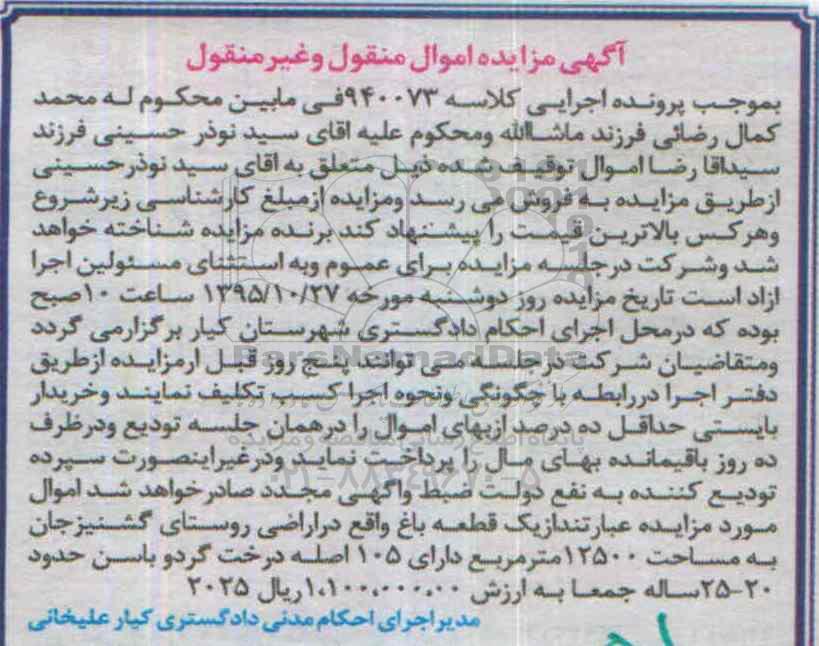 آگهی مزایده اموال منقول وغیرمنقول
بموجب پرونده اجرایی کلاسه ۹۴۰۰۷۳فی مابین محکوم له محمد
کمال رضائی فرزند ماشاالله ومحکوم علیه اقای سید نوذر حسینی فرزند
سیداقا رضا اموال توقیف شده ذیل متعلق به اقای سید نوذرحسینی
ازطریق مزایده به فروش می رسد ومزایده ازمبلغ کارشناسی زیرشروع
وهرکس بالاترین قیمت را پیشنهاد کند برنده مزایده شناخته خواهد
شد وشرکت درجلسه مزایده برای عموم وبه استثنای مسئولین اجرا
ازاد است تاریخ مزایده روز دوشنبه مورخه ۱۳۹۵/۱۰/۲۷ ساعت ۱۰صبح
بوده که درمحل اجرای احکام دادگستری شهرستان کیار برگزارمی گردد
ومتقاضیان شرکت درجلسه می توانند پنج روز قبل ازمزایده ازطریق
دفتر اجرا دررابطه با چگونگی ونحوه اجرا کسب تکلیف نمایند وخریدار
بایستی حداقل ده درصد ازبهای اموال را درهمان جلسه تودیع ودرظرف
ده روز باقیمانده بهای مال را پرداخت نماید ودرغیراینصورت سپرده
تودیع کننده به نفع دولت ضبط واگهی مجدد صادرخواهد شد اموال
مورد مزایده عبارتندازیک قطعه باغ واقع دراراضی روستای گشنیزجان
به مساحت ۱۲۵۰۰مترمربع دارای ۱۰۵ اصله درخت گردو باسن حدود
۲۰-۲۵ساله جمعا به ارزش ۱،۱۰۰،۰۰۰،۰۰ریال ۲۰۲۵
مدیراجرای احکام مدنی دادگستری کیار علیخانی
ParsNamadData
۰۲۱-۸۸۳۴۹۶۷۰-۵